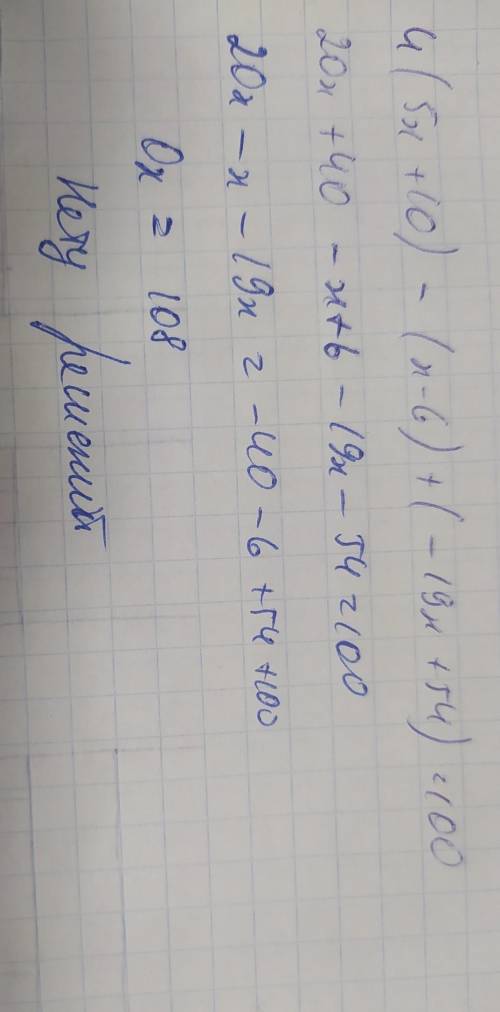 4(5x+10)-(x-6)+(-19x+54)=100
20x+40-x+6-19x-54=100
20x-x-19x=-40-6+54+100
0x=108
Нету решений